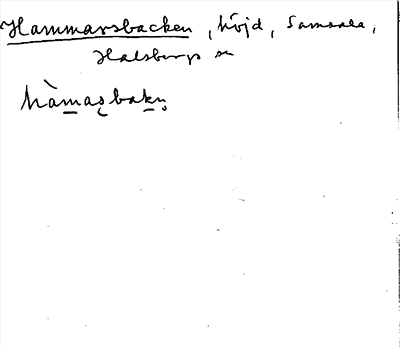 Hammarsbacken, höjd, Samsala,
Hallsbergs sn
hàmasbakn̥